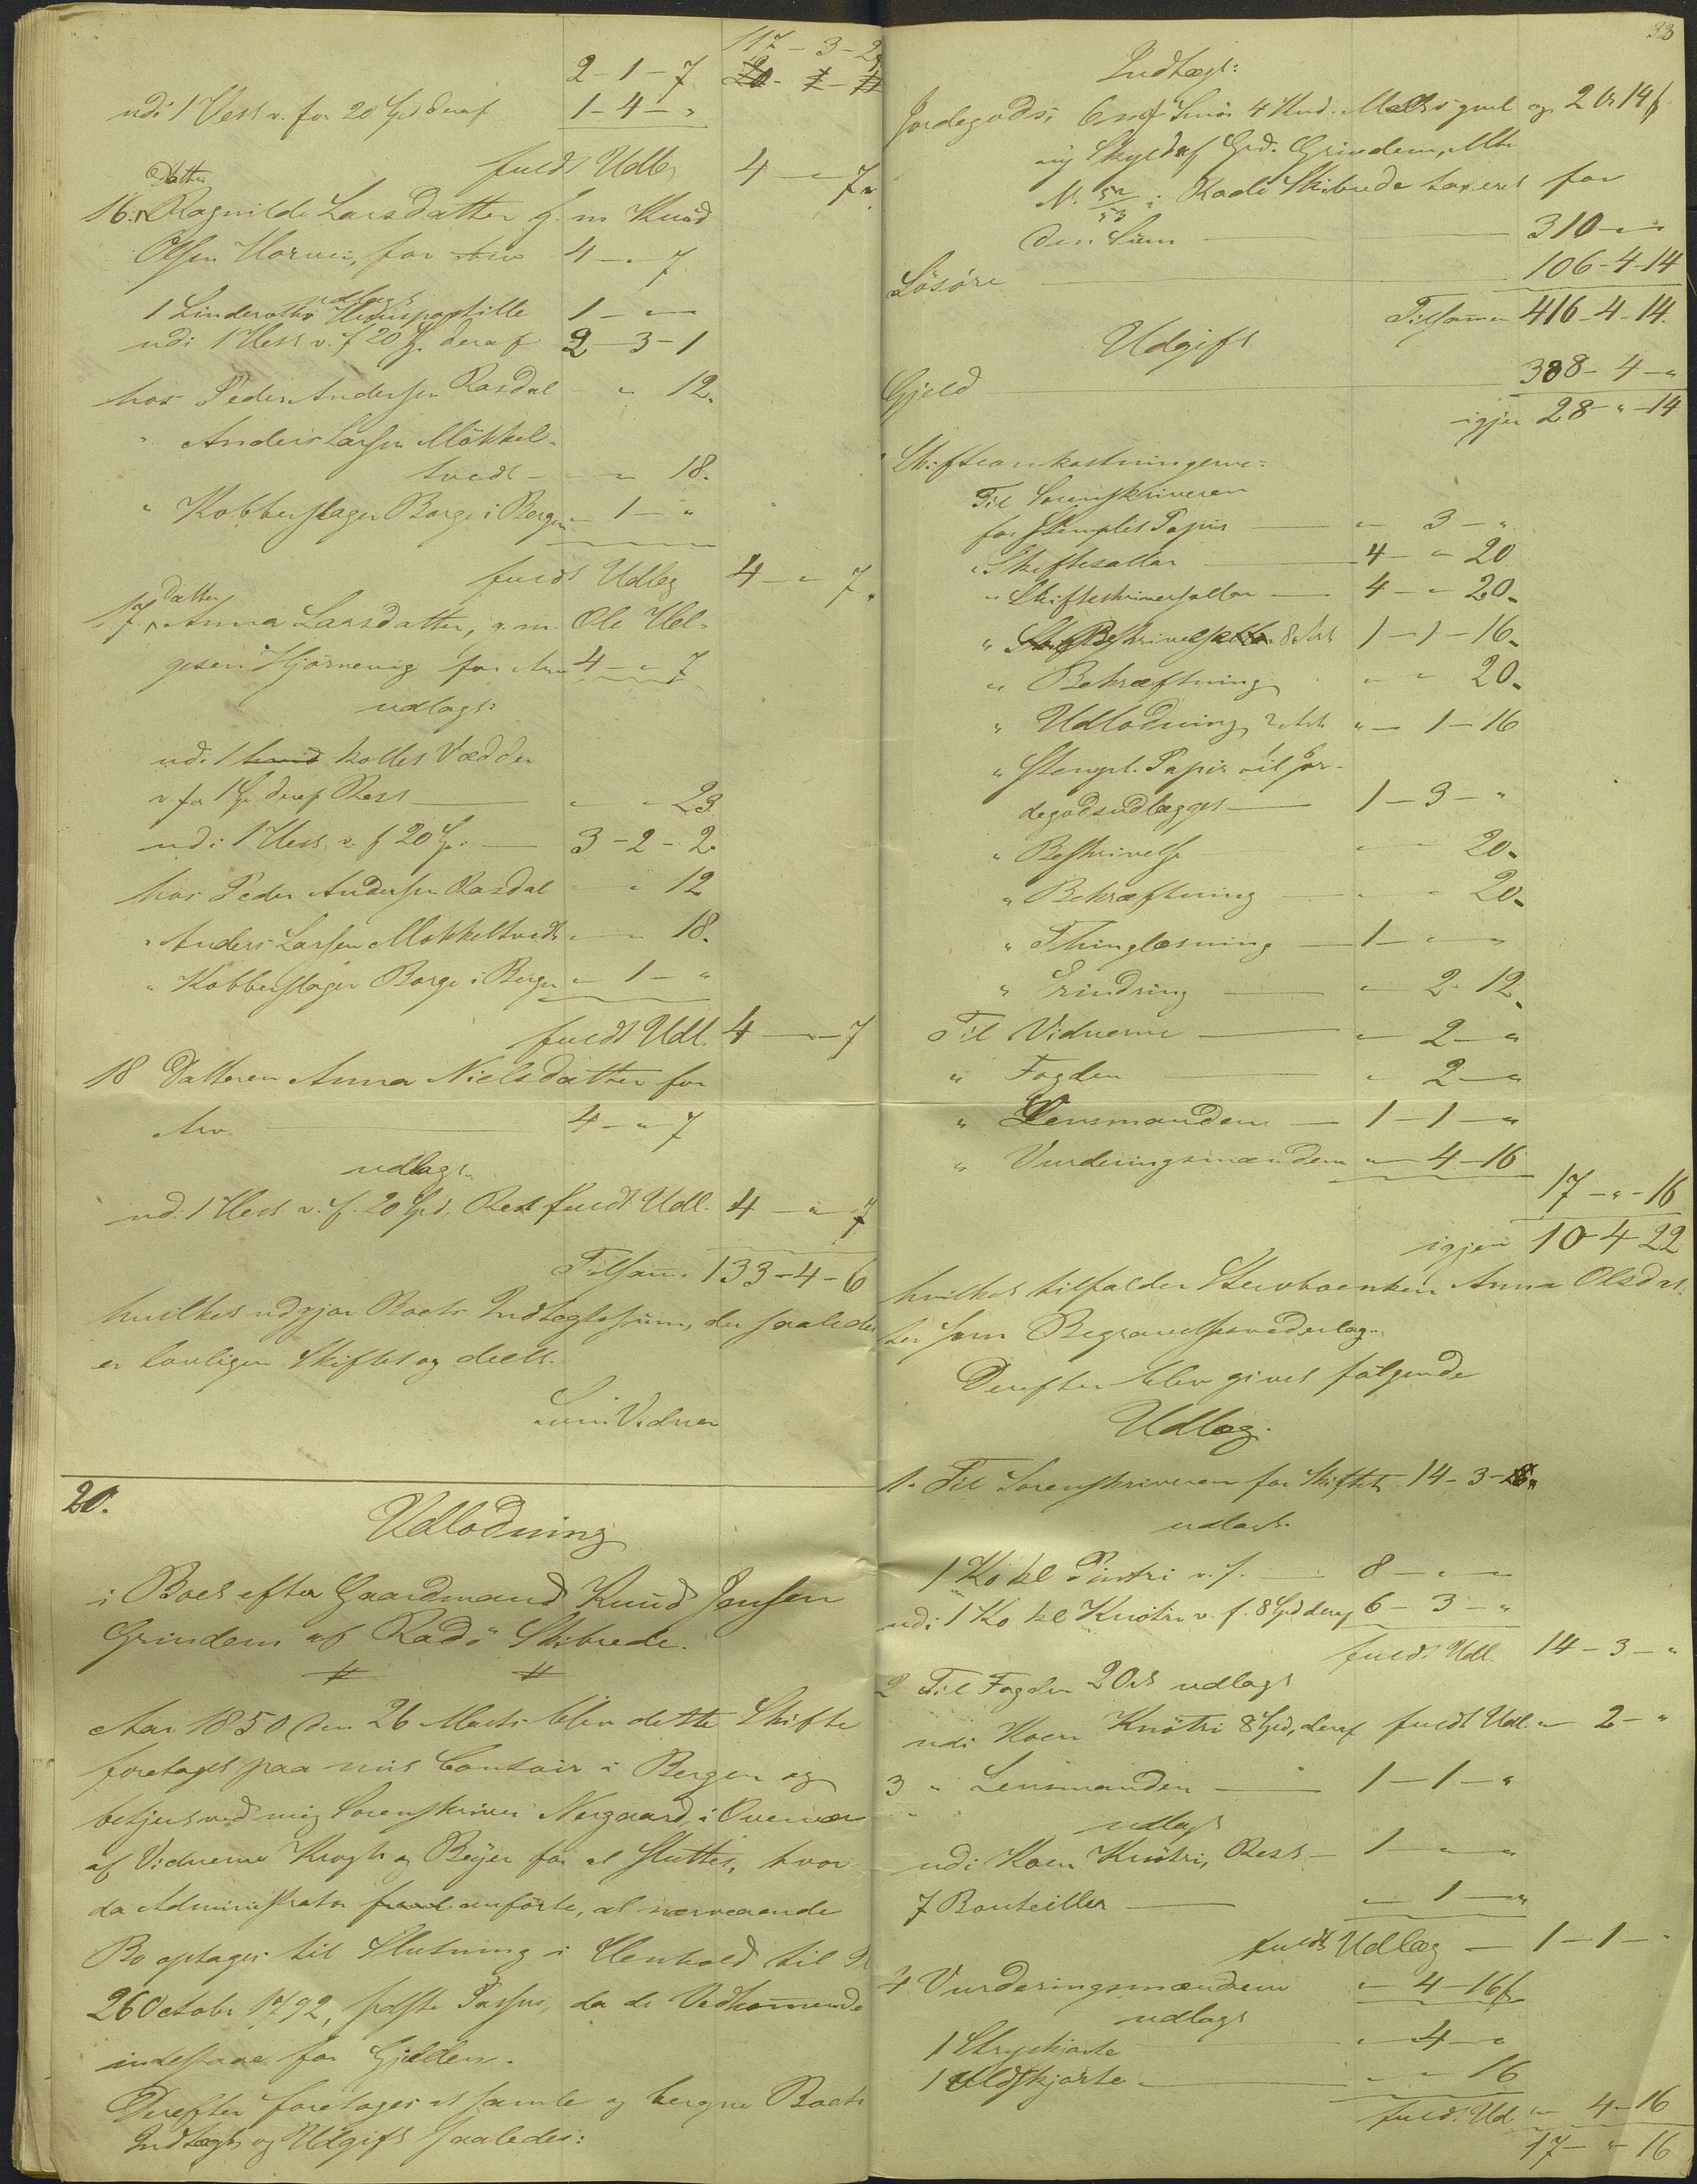 117 - 3 - 23
2 - 1 - 7
udi 1 Hest v. for 20 Spd deraf 1 - 4 - "
fuldt Udlæg 4 - " - 7.
16. Datter Ragnilde Larsdatter g. m. Knud
Olsen Horvei, for Arv 4 - " 7
udlagt
1 Linderoths Huuspostille 1 - " -
udi 1 Hest v. f 20 Sp. deraf 2 - 3 - 1
hos Peder Andersen Rosdal - " 12.
" Anders Larsen Mökkel-
tvedt - - " 18.
" Kobberslager Borge i Bergen " 1 - "
fuldt Udlæg 4 - " 7.
17 Datter Anna Larsdatter, g. m. Ole Hel-
gesen Hjörnevig for Arv 4 - " 7
udlagt:
udi 1 hvid kollet Vædder
v. for 1 Sp. deraf Rest - " " 23
udi 1 Hest v. f 20 Sp. - 3 - 2 - 2
hos Peder Andersen Rosdal " " 12
" Anders Larsen Mökkeltvedt " - " 18.
" Kobberslager Borge i Bergen " 1 - "
fuldt Udl. 4 - " - 7
18 Datteren Anna Nielsdatter for
Arv - 4 - " - 7
udlagt
udi 1 Hest v. f. 20 Spd, Rest fuldt Udl. 4 - " 7
Tilsam. 133 - 4 - 6
hvilket udgjør Boets Indtægtssum, der saaledes
er lovligen Skiftet og deelt.
Vidner
20.
Udlodning
i Boet efter Gaardmand Knud Jensen
Grindem af Radö Skibrede.
Aar 1850 den 26 Marts blev dette Skifte
foretaget paa mit Contoir i Bergen og
betjent ved mig Sorenskriver Norgaard, i Overvær
af Vidnerne Krogh og Beyer for at sluttes, hvor-
da Administrator anförte, at nærværende
Bo optages til Slutning i Henhold til Pl
26 Octobr 1792, sidste Passus, da de Vedkommende
indestaae for Gjelden.
Derefter foretages at samle og beregne Boets
Indtægt og Udgift saaledes:
33
Indtægt:
Jordegods; 6 Smör 4 Knd. Malts gml og 2 Or 14 s
ny Skyld af Grd. Grindem, Mtr
N. 52/53 i Radö Skibrede taxeret for
den Sum - 310 - " -
Lösöre - 106 - 4 - 14
Tilsammen 416 - 4 - 14.
Udgift
Gjeld - 388 - 4 - "
igjen 28 - " - 14
Skifteomkostningerne:
Til Sorenskriveren
for Stemplet Papir - " 3 - "
" Skiftesallar - 4 - " 20
" Skifteskriversallar - 4 - " 20.
" Beskrivelse 8 Ark 1 - 1 - 16.
" Bekræftning " " 20.
" Udlodning 2 Ark " - 1 - 16
" Stempl. Papir til Jor-
degodsudlægget - 1 - 3 - "
" Beskrivelse - " - 20.
" Bekræftning - " " 20.
" Thinglæsning - 1 - " - "
" Erindring - " 2 - 12.
Til Vidnerne - " 2 - "
" Fogden - " 2 - "
" Lensmanden - 1 - 1 - "
" Vurderingsmændene " 4 - 16
17 - " - 16
igjen 10 - 4 - 22
hvilket tilfalder Stervboenken Anna Olsdat-
ter som Begravelsesvederlag.
Derefter blev givet fölgende
Udlæg.
1. Til Sorenskriveren for Skiftet 14 - 3 - "
udlagt.
1 Ko kl Pintri v. f. - 8 - " -
udi 1 Ko kl Knötri v. f. 8 Spd deraf 6 - 3 - "
fuldt Udl. 14 - 3 - "
2 Til Fogden 2 Ort udlagt
udi Koen Knötri 8 Spd, deraf fuldt Udl. " 2 - "
3 " Lensmanden - 1 - 1 - "
udlagt
udi Koen Knötri, Rest - 1 - " - "
7 Bouteiller - " 1 - "
fuldt Udlæg - 1 - 1 - "
4 Vurderingsmændene " 4 - 16 s
udlagt
1 Stryskjorte " 4 - "
1 Uldskjorte - " " 16
fuldt Ud. " 4 - 16
17 - " 16